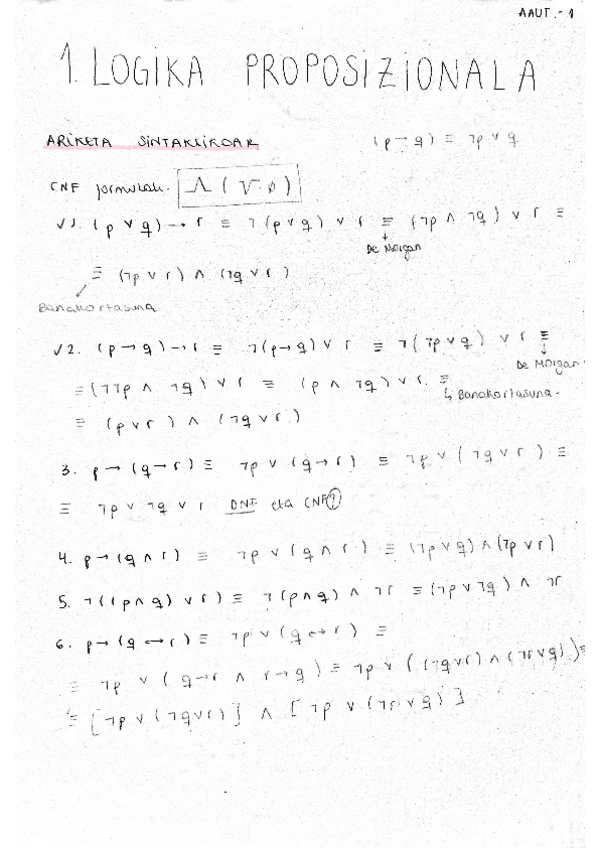 AAUT.-1
1. LOGIKA PROPOSIZIONALA
ARIKETA SINTAKTIKOAK (p→q) ≡ ¬p ∨ q
CNF formulak. ⋀ ( ⋁ φ )
√1. (p ∨ q) → r ≡ ¬(p ∨ q) ∨ r ≡ (¬p ∧ ¬q) ∨ r ≡
De Morgan
≡ (¬p ∨ r) ∧ (¬q ∨ r)
Banakortasuna
√2. (p→q)→r ≡ ¬(p→q) ∨ r ≡ ¬(¬p ∨ q) ∨ r ≡
De Morgan
≡ (¬¬p ∧ ¬q) ∨ r ≡ (p ∧ ¬q) ∨ r. ≡
↳ Banakortasuna.
≡ (p ∨ r) ∧ (¬q ∨ r)
3. p→(q→r) ≡ ¬p ∨ (q→r) ≡ ¬p ∨ (¬q ∨ r) ≡
≡ ¬p ∨ ¬q ∨ r DNF eta CNF?
4. p→(q ∧ r) ≡ ¬p ∨ (q ∧ r) ≡ (¬p ∨ q) ∧ (¬p ∨ r)
5. ¬((p ∧ q) ∨ r) ≡ ¬(p ∧ q) ∧ ¬r ≡ (¬p ∨ ¬q) ∧ ¬r
6. p→(q ↔ r) ≡ ¬p ∨ (q ↔ r) ≡
≡ ¬p ∨ (q→r ∧ r→q) ≡ ¬p ∨ ((¬q ∨ r) ∧ (¬r ∨ q)) ≡
≡ [¬p ∨ (¬q ∨ r)] ∧ [¬p ∨ (¬r ∨ q)]